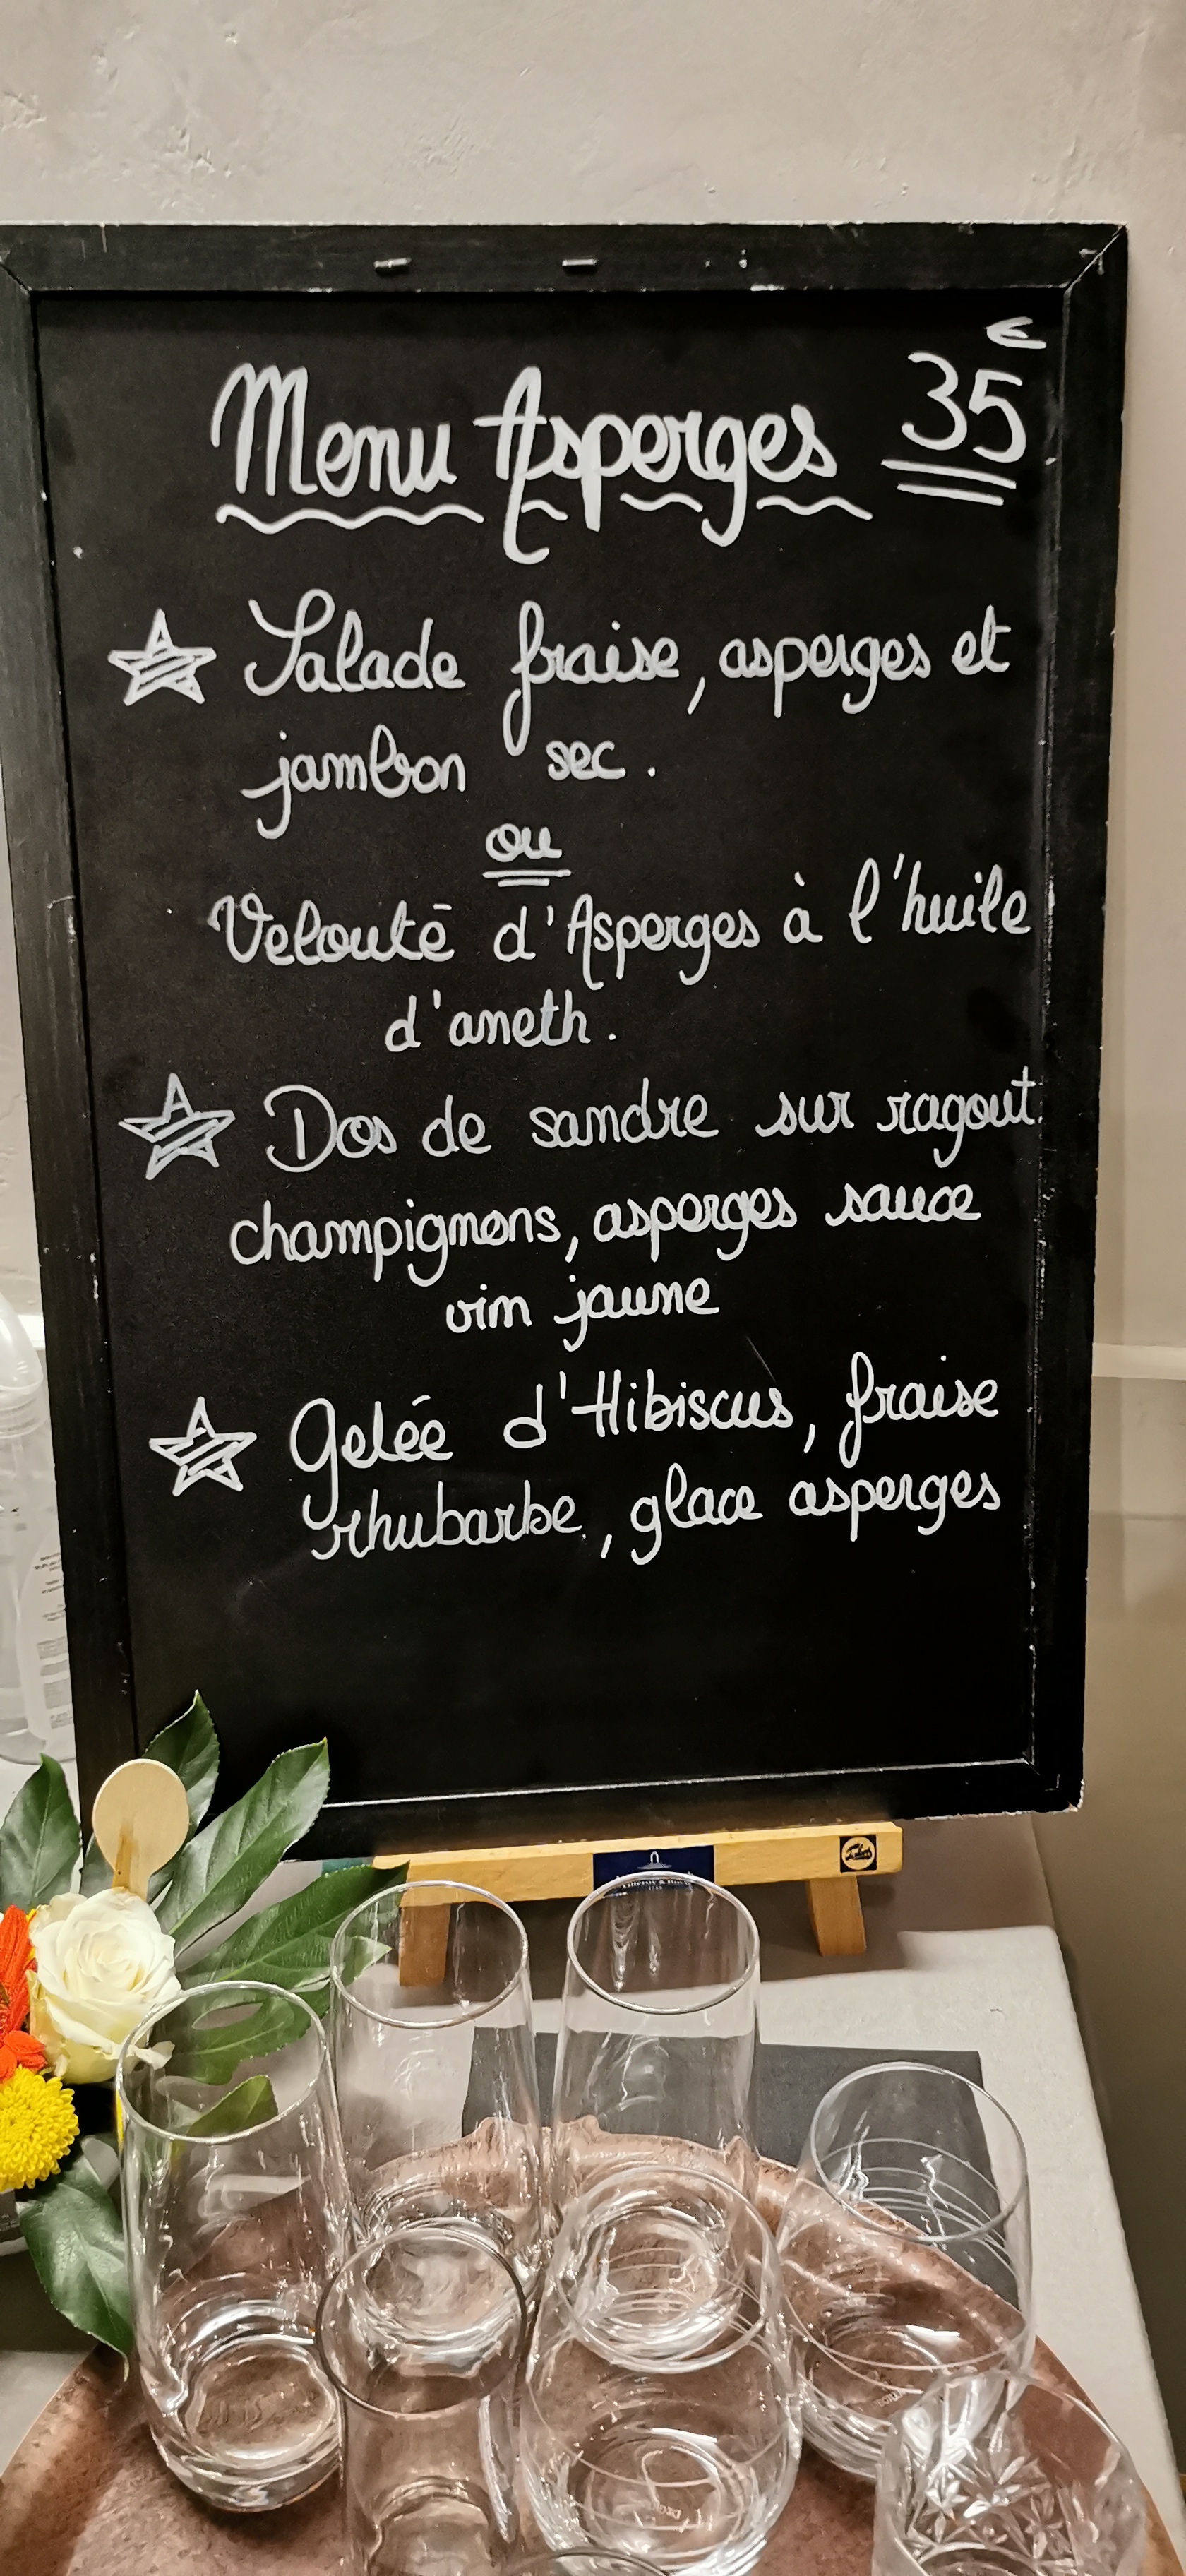 Menu Asperges 35€
Salade fraise, asperges et
jambon sec.
ou
Velouté d'Asperges à l'huile
d'aneth.
Dos de sandre sur ragout
champignons, asperges sauce
vin jaune
Gelée d'Hibiscus, fraise
rhubarbe, glace asperges